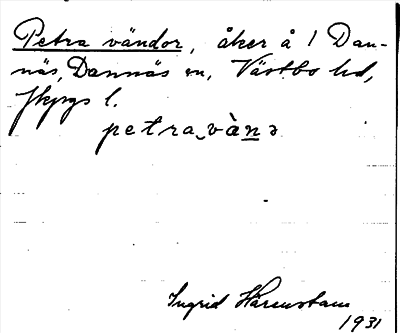 Petra vändor, åker å 1 Dan-
näs, Dannäs sn, Västbo hd,
Jkpgs l.
petra vànə
Ingrid
1931